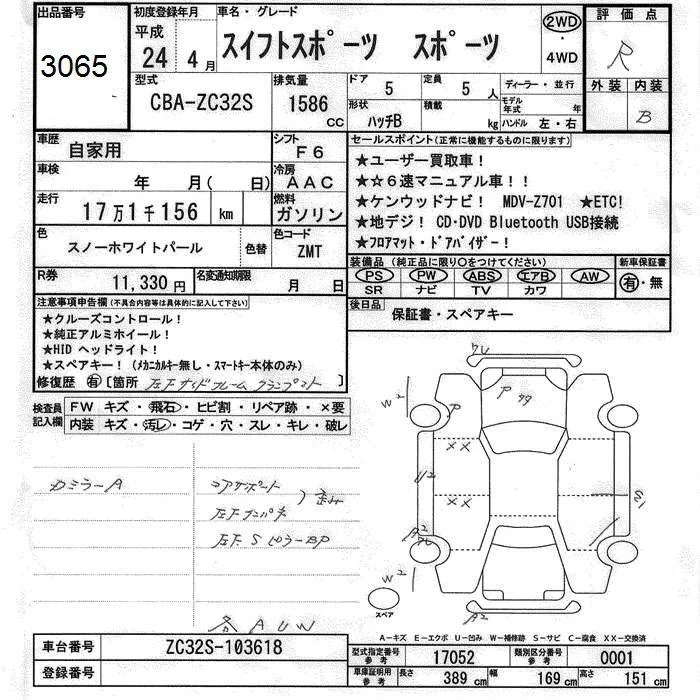 出品番号
3065
初度登録年月
平成
24年 4月
車名・グレード
スイフトスポーツ スポーツ
2WD
・
4WD
評価点
R
外装 内装
B
型式
CBA-ZC32S
排気量
1586
CC
ドア
5
定員
5 人
ディーラー・並行
形状
ハッチB
積載
kg
モデル年式
年
ハンドル 左・右
車歴
自家用
シフト
F6
車検
年 月( 日)
冷房
AAC
走行
17万1千156 km
燃料
ガソリン
色
スノーホワイトパール
色替
色コード
ZMT
R券
11,330円
名変通知期限
月 日
セールスポイント(正常に機能するものに限ります)
★ユーザー買取車!
★☆6速マニュアル車!!
★ケンウッドナビ! MDV-Z701 ★ETC!
★地デジ! CD・DVD Bluetooth USB接続
★フロアマット・ドアバイザー!
装備品(純正品に限り〇をつけてください)
新車保証書
PS PW ABS エアB AW
SR ナビ TV カワ
有・無
後日品
保証書・スペアキー
注意事項申告欄(不具合内容等は具体的に記入して下さい)
★クルーズコントロール!
★純正アルミホイール!
★HID ヘッドライト!
★スペアキー!(メカニカルキー無し・スマートキー本体のみ)
修復歴 有 [箇所 左Fサイドフレーム ]
検査員記入欄
FW キズ・飛石・ヒビ割・リペア跡・×要
内装 キズ・汚レ・コゲ・穴・スレ・キレ・破レ
カミラーA
コアサポート
左Fインパネ
歪み
左F.SピラーBP
各AUW
P
P
XX
XX
U2
W2
A2
W2
A2
S1
スペア
A-キズ E-エクボ U-凹み W-補修跡 S-サビ C-腐食 XX-交換済
車台番号
ZC32S-103618
登録番号
型式指定番号 参考
17052
類別区分番号 参考
0001
車庫証明用 参考
長さ 389 cm
幅 169 cm
高さ 151 cm